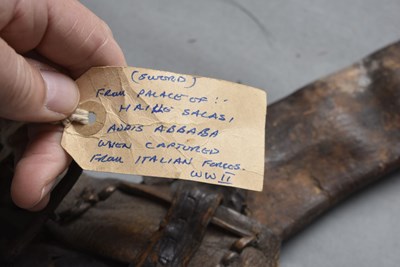 (SWORD)
FROM PALACE OF :-
HAILE SALASI
ADDIS ABBABA
WHEN CAPTURED
FROM ITALIAN FORCES.
WW II